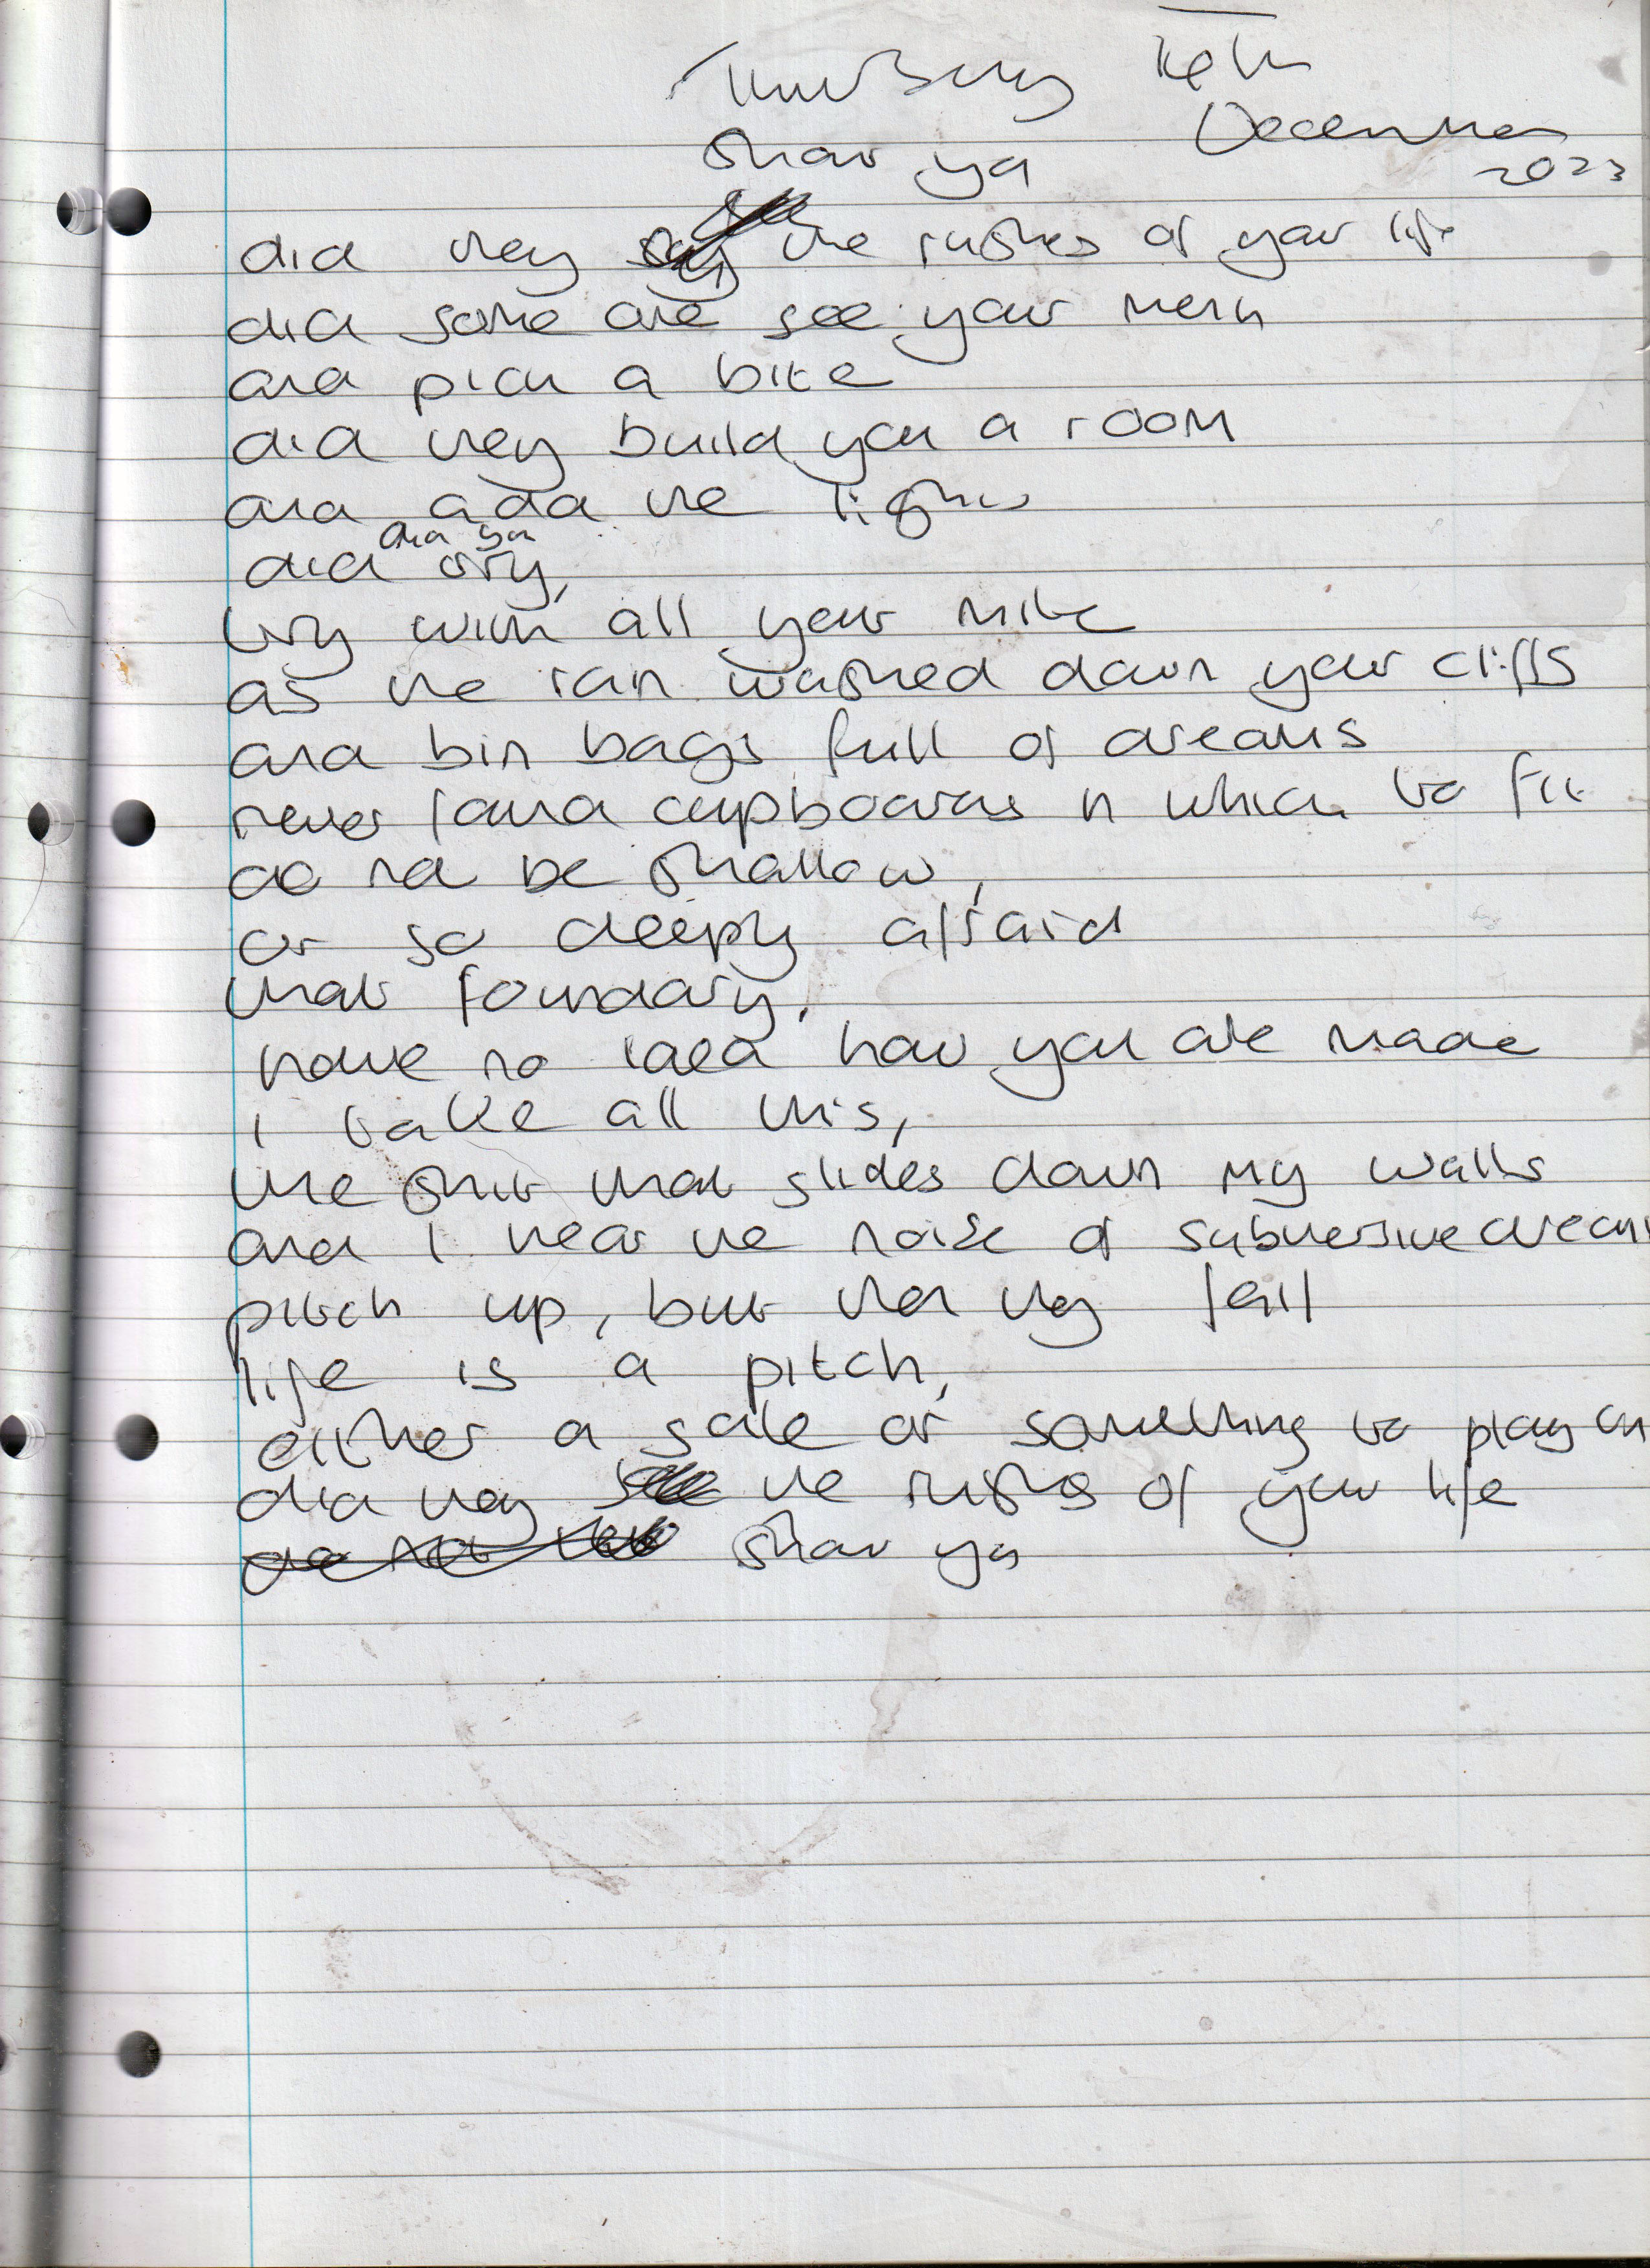 Thursday 14th
December
2023
show ya
did they the rushes of your life
did some one see your mern
and pick a bite
did they build you a room
and add the lights
did ya
did cry,
try with all your mite
as the rain washed down your cliffs
and bin bags full of dreams
never found cupboards n which to fit
do not be shallow,
or so deeply afraid
that foundary,
have no idea how you are made
i take all this,
the shit that slides down my walls
and i hear the noise of subversive dream
pitch up, but then they fall
life is a pitch,
either a sale or something to play on
did they the rushes of your life
show ya